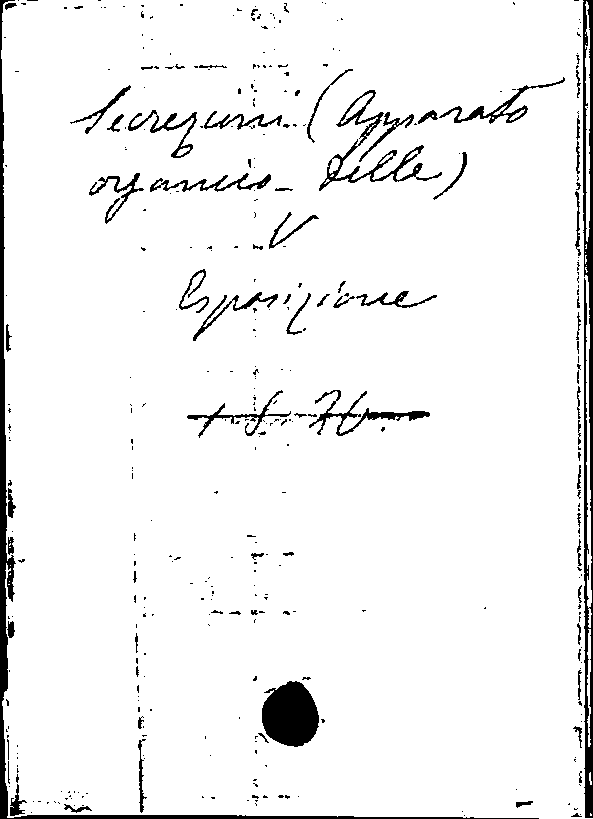 Secrezioni (Apparato
organico - delle)
V
Esposizione